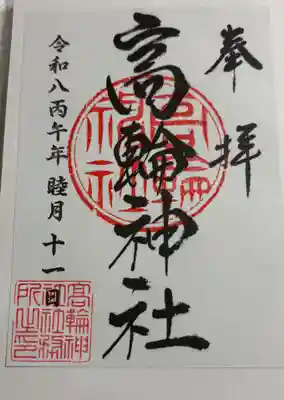 奉拝
高輪神社
令和八丙午年 睦月 十一日
高輪神
社社務
所之印